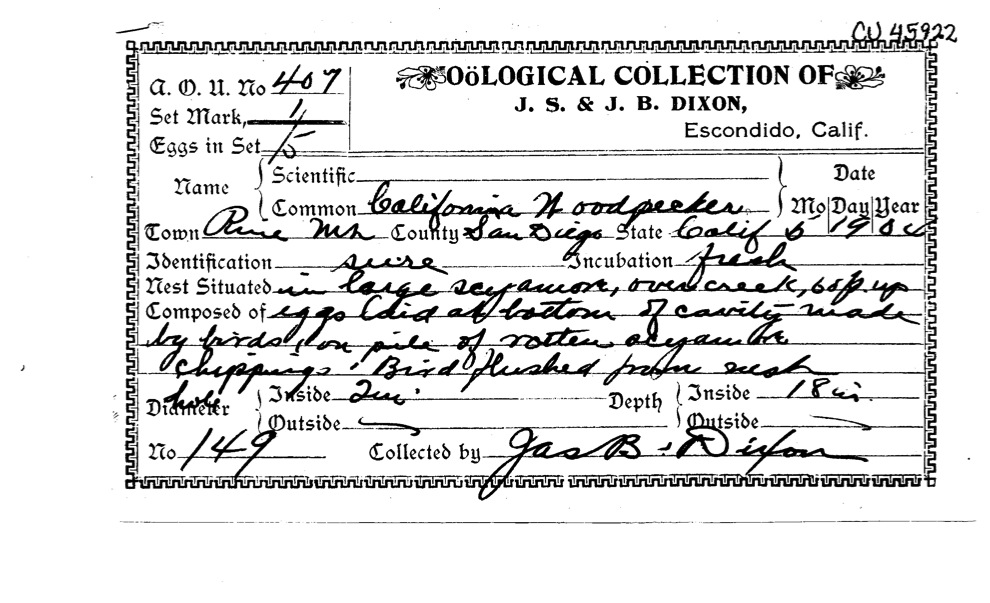 CU 45922
A. O. U. No 407
OöLOGICAL COLLECTION OF
J. S. & J. B. DIXON,
Escondido, Calif.
Set Mark, 1/5
Eggs in Set
Name Scientific Date
Common California Woodpecker Mo Day Year
Town Pine Mtn County San Diego State Calif 5 19
Identification sure Incubation fresh
Nest Situated in large scyamore, over creek, 60 f. up
Composed of eggs laid at bottom of cavity made
by birds, on pile of rotten scyamore
chippings. Bird flushed from nest
hole
Diameter Inside 2 in. Depth Inside 18 in.
Outside Outside
No 149 Collected by Jas B. Dixon